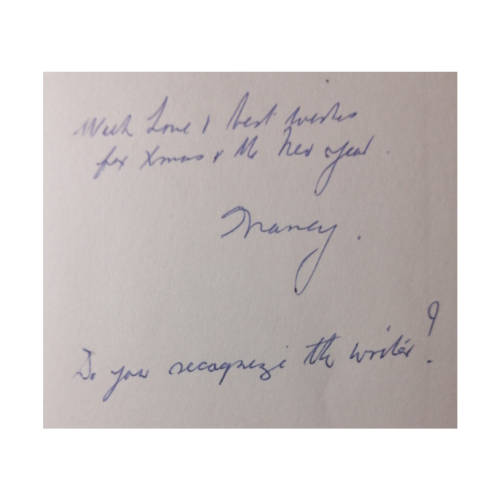 With Love & best wishes
for Xmas & the New year.
Nancy.
Do you recognize the writer?